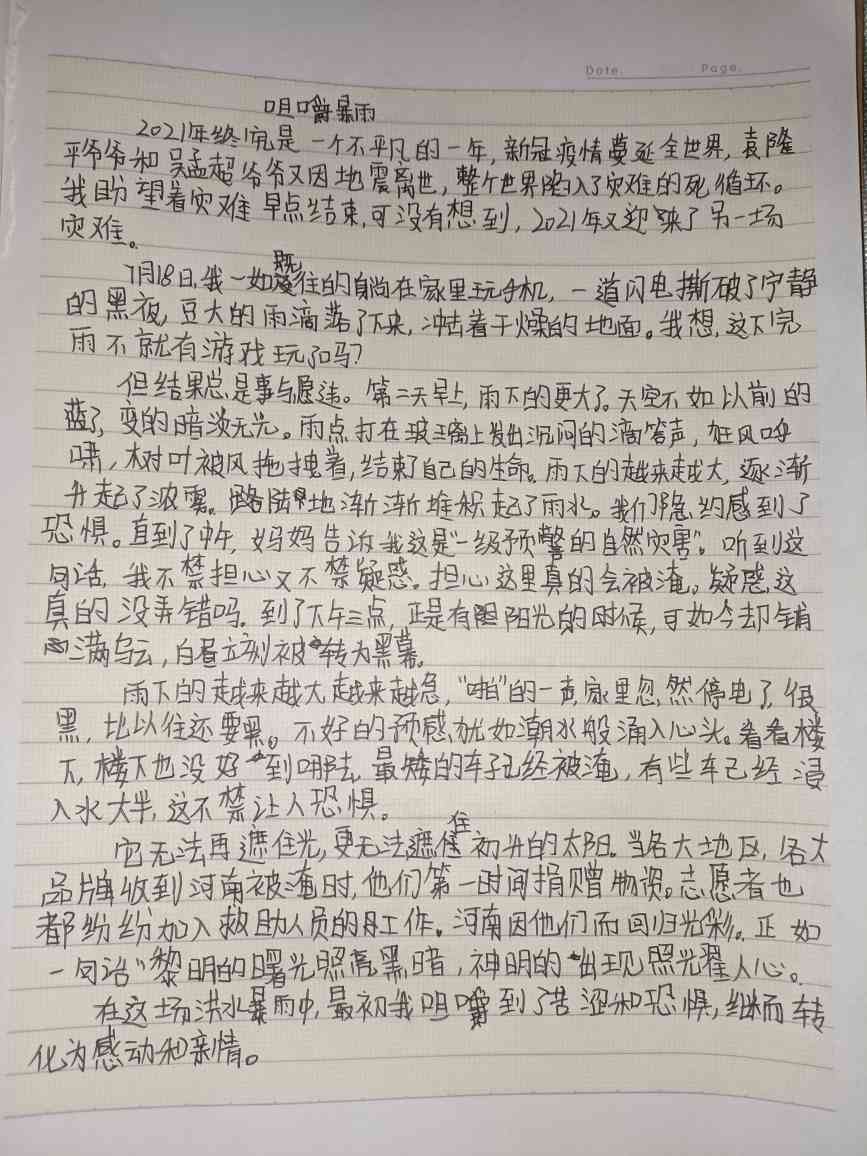 Date. Page.
咀嚼暴雨
2021年终究是一个不平凡的一年，新冠疫情蔓延全世界，袁隆
平爷爷和吴孟超爷爷又因地震离世，整个世界陷入了灾难的死循环。
我盼望着灾难早点结束，可没有想到，2021年又迎来了另一场
灾难。
7月18日，我一如既往的躺在家里玩手机，一道闪电撕破了宁静
的黑夜，豆大的雨滴落了下来，冲击着干燥的地面。我想，这下完
雨不就有游戏玩了吗？
但结果总是事与愿违。第二天早上，雨下的更大了。天空不如以前的
蓝了，变的暗淡无光。雨点打在玻璃上发出沉闷的滴答声，狂风呼
啸，树叶被风拖拽着，结束了自己的生命。雨下的越来越大，逐渐
升起了浓雾。路陆地渐渐堆积起了雨水。我们隐约感到了
恐惧。直到了中午，妈妈告诉我这是“一级预警的自然灾害”。听到这
句话，我不禁担心又不禁疑惑。担心这里真的会被淹。疑惑这
真的没弄错吗。到了下午三点，正是有阳光的时候，可如今却铺
满乌云，白昼立刻被转为黑幕。
雨下的越来越大，越来越急，“啪”的一声，家里忽然停电了，很
黑，比以往还要黑。不好的预感，犹如潮水般涌入心头。看看楼
下，楼下也没好到哪去，最矮的车子已经被淹，有些车已经浸
入水大半，这不禁让人恐惧。
它无法再遮住光，更无法遮住初升的太阳。当各大地区，各大
品牌收到河南被淹时，他们第一时间捐赠物资。志愿者也
都纷纷加入救助人员的工作。河南因他们而回归光彩。正如
一句话“黎明的曙光照亮黑暗，神明的出现照光耀人心。
在这场洪水暴雨中，最初我咀嚼到了苦涩和恐惧，继而转
化为感动和亲情。